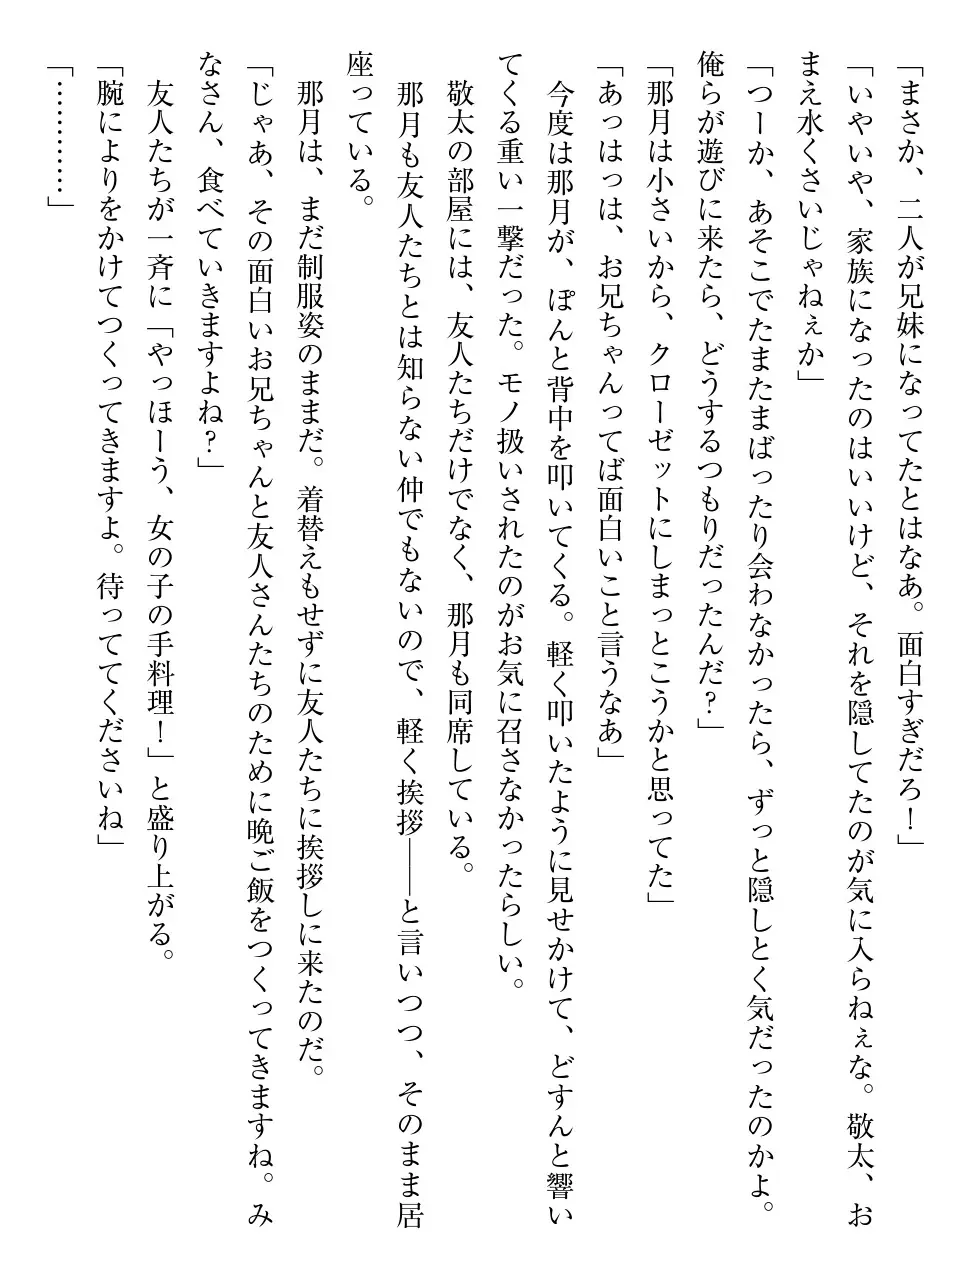 「まさか、二人が兄妹になってたとはなあ。面白すぎだろ！」
「いやいや、家族になったのはいいけど、それを隠してたのが気に入らねぇな。敬太、お
まえ水くさいじゃねぇか」
「つーか、あそこでたまたまばったり会わなかったら、ずっと隠しとく気だったのかよ。
俺らが遊びに来たら、どうするつもりだったんだ？」
「那月は小さいから、クローゼットにしまっとこうかと思ってた」
「あっはっは、お兄ちゃんってば面白いこと言うなあ」
　今度は那月が、ぽんと背中を叩いてくる。軽く叩いたように見せかけて、どすんと響い
てくる重い一撃だった。モノ扱いされたのがお気に召さなかったらしい。
　敬太の部屋には、友人たちだけでなく、那月も同席している。
　那月も友人たちとは知らない仲でもないので、軽く挨拶――と言いつつ、そのまま居
座っている。
　那月は、まだ制服姿のままだ。着替えもせずに友人たちに挨拶しに来たのだ。
「じゃあ、その面白いお兄ちゃんと友人さんたちのために晩ご飯をつくってきますね。み
なさん、食べていきますよね？」
　友人たちが一斉に「やっほーう、女の子の手料理！」と盛り上がる。
「腕によりをかけてつくってきますよ。待っててくださいね」
「…………」